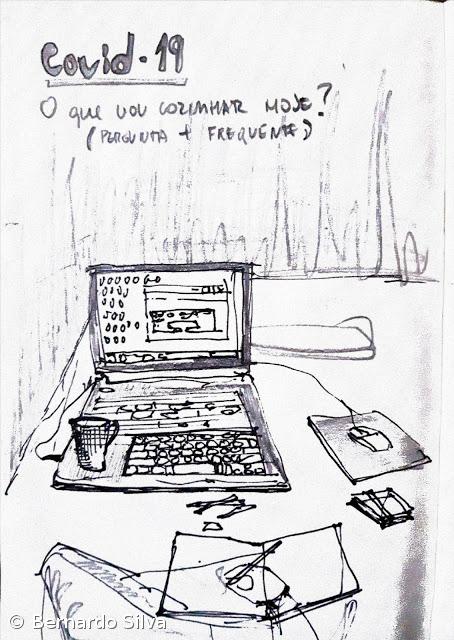 Covid-19
O que vou cozinhar hoje?
(pergunta + frequente)
© Bernardo Silva